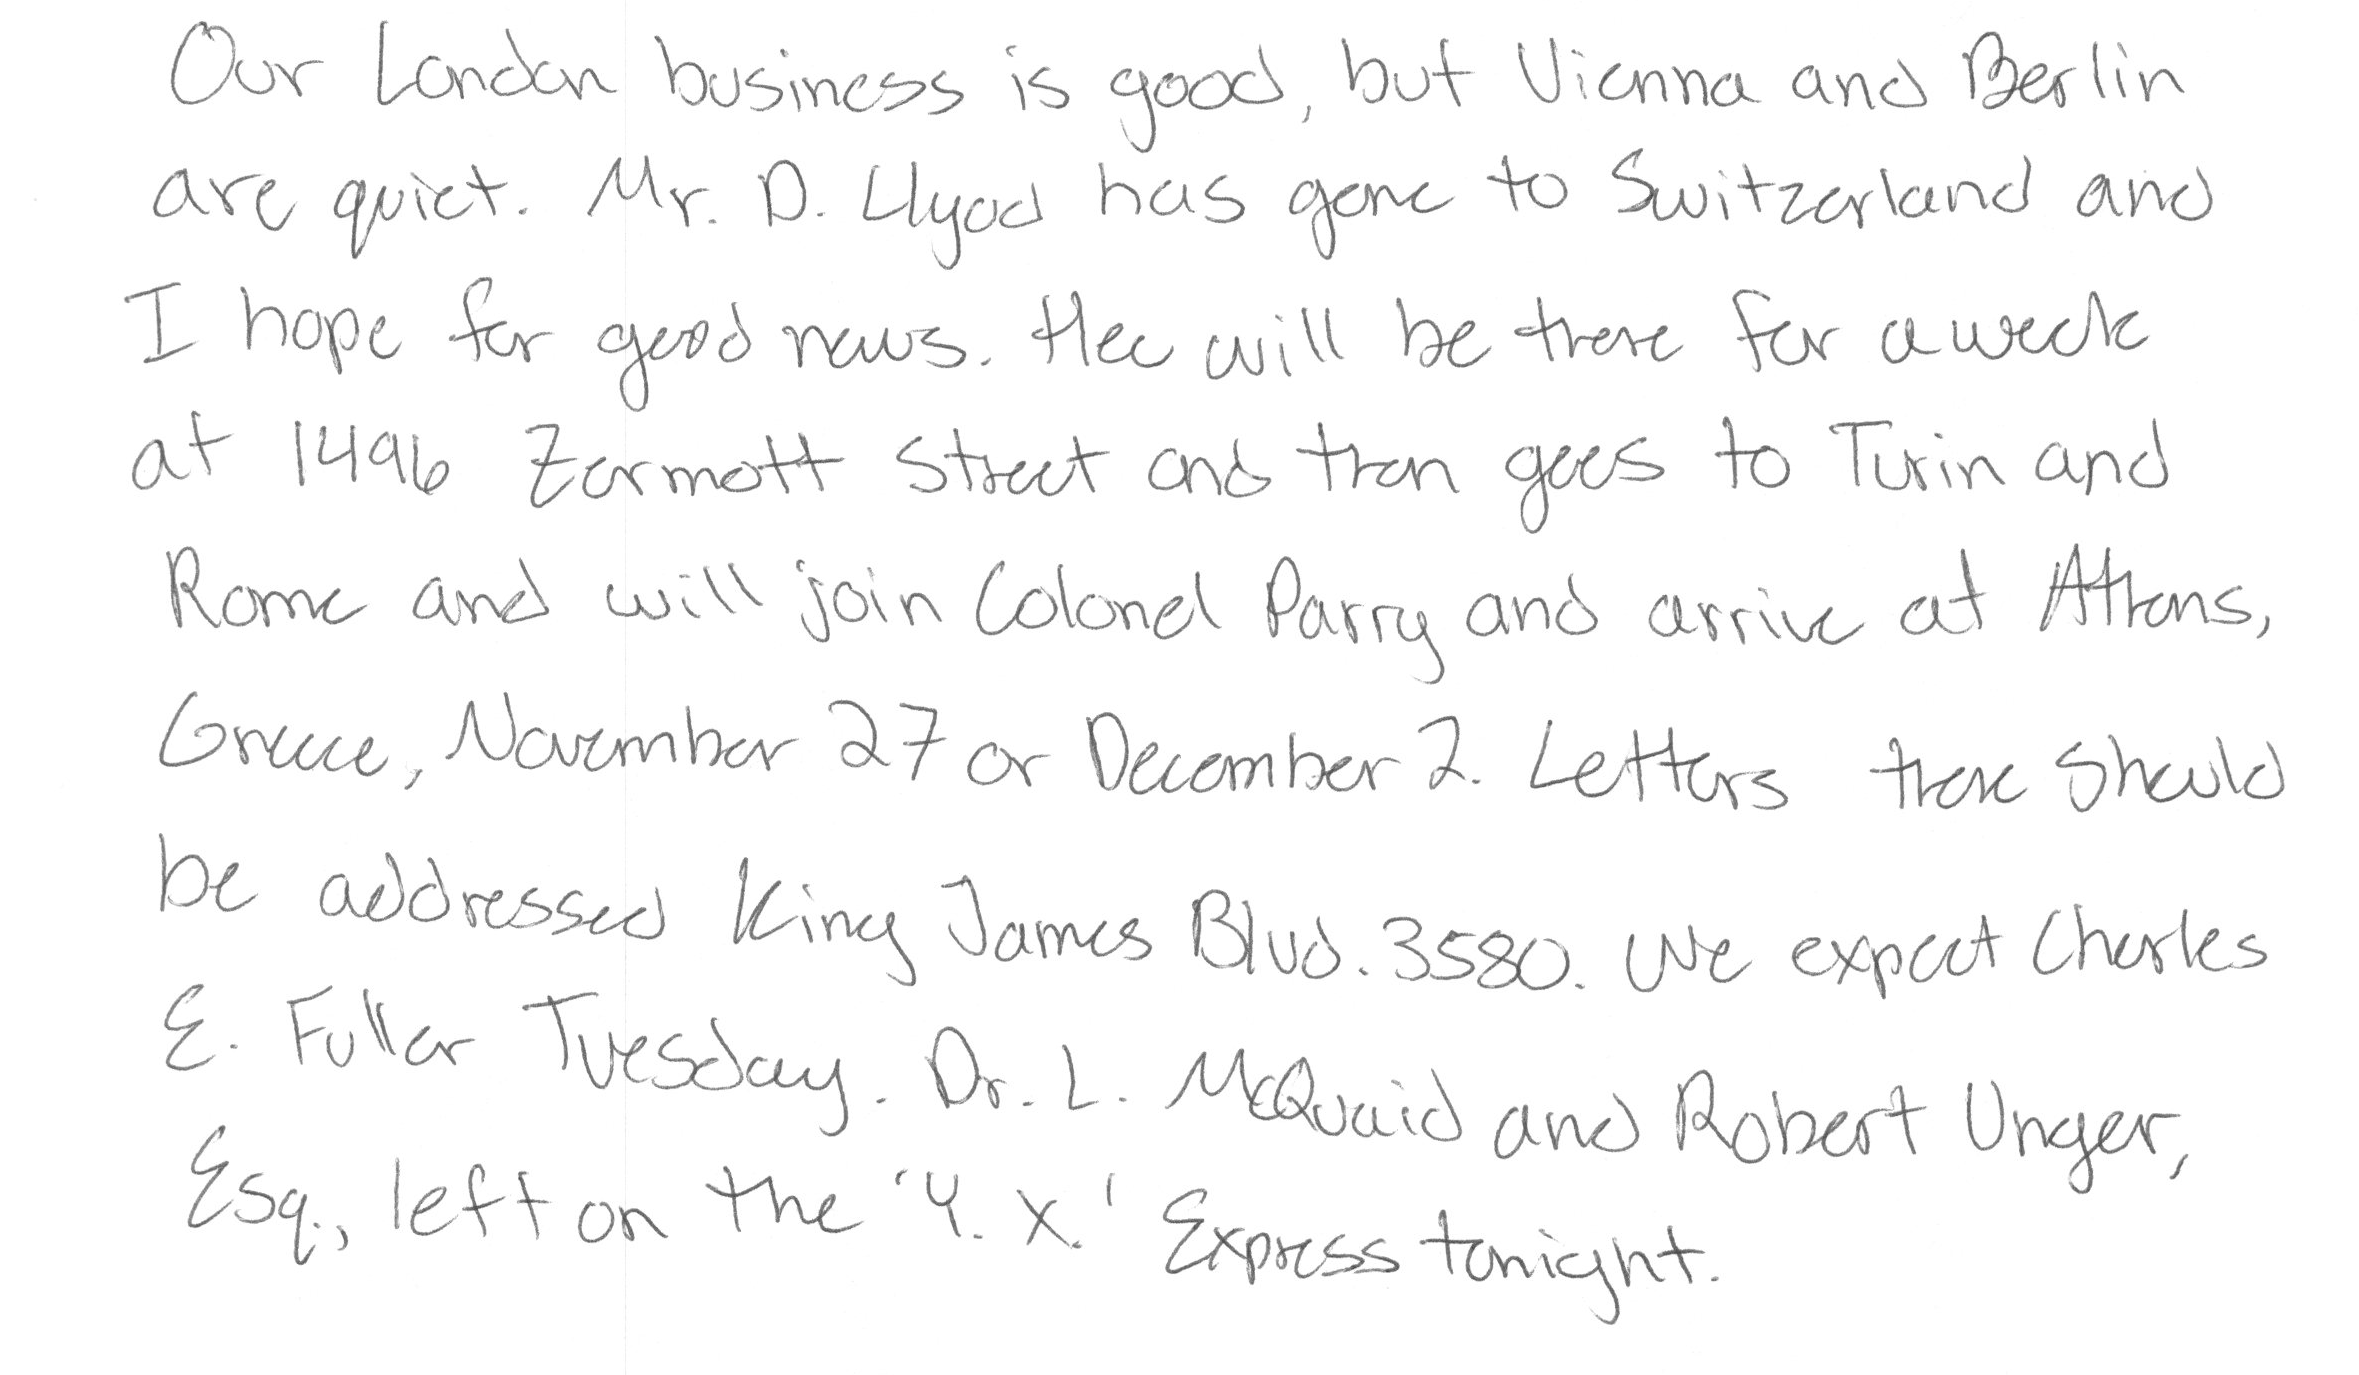 Our London business is good, but Vienna and Berlin
are quiet. Mr. D. Llyod has gone to Switzerland and
I hope for good news. Hee will be there for a week
at 1496 Zermott Street and then goes to Turin and
Rome and will join Colonel Parry and arrive at Athens,
Greece, November 27 or December 2. Letters there should
be addressed King James Blvd. 3580. We expect Charles
E. Fuller Tuesday. Dr. L. McQuaid and Robert Unger,
Esq., left on the 'Y. X.' Express tonight.